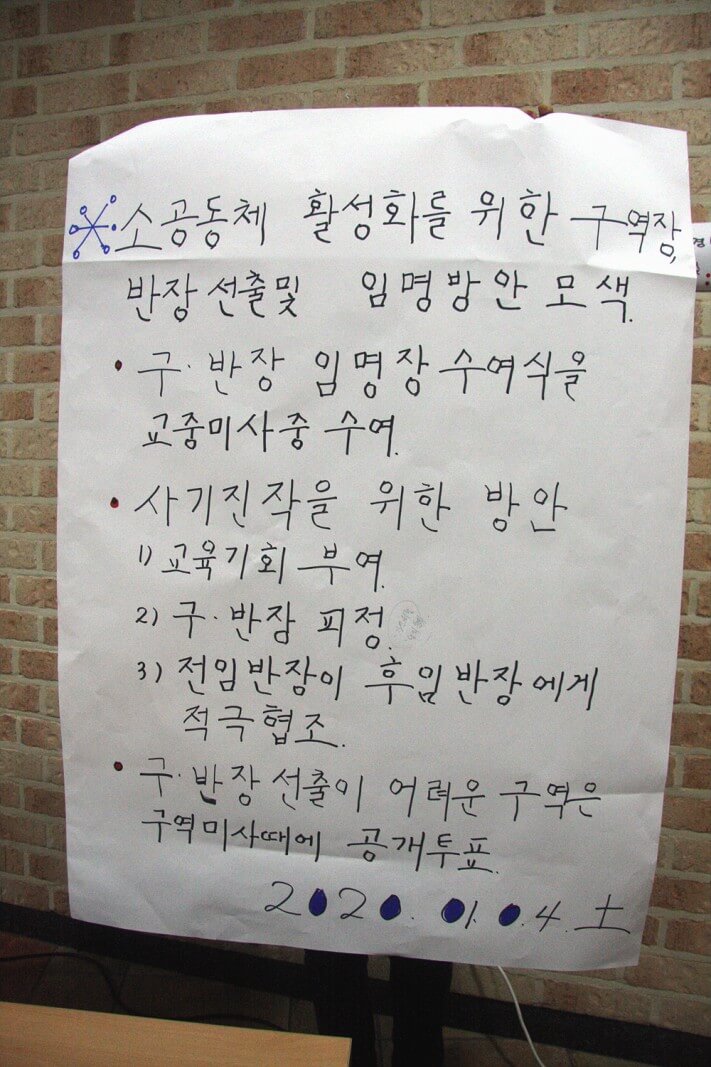 ※ 소공동체 활성화를 위한 구역장,
반장 선출및 임명방안 모색.
• 구·반장 임명장 수여식을
교중미사중 수여.
• 사기진작을 위한 방안
1) 교육기회 부여.
2) 구·반장 피정.
3) 전임반장이 후임반장에게
적극협조.
• 구·반장선출이 어려운 구역은
구역미사때에 공개투표.
2020. 01. 04. 土